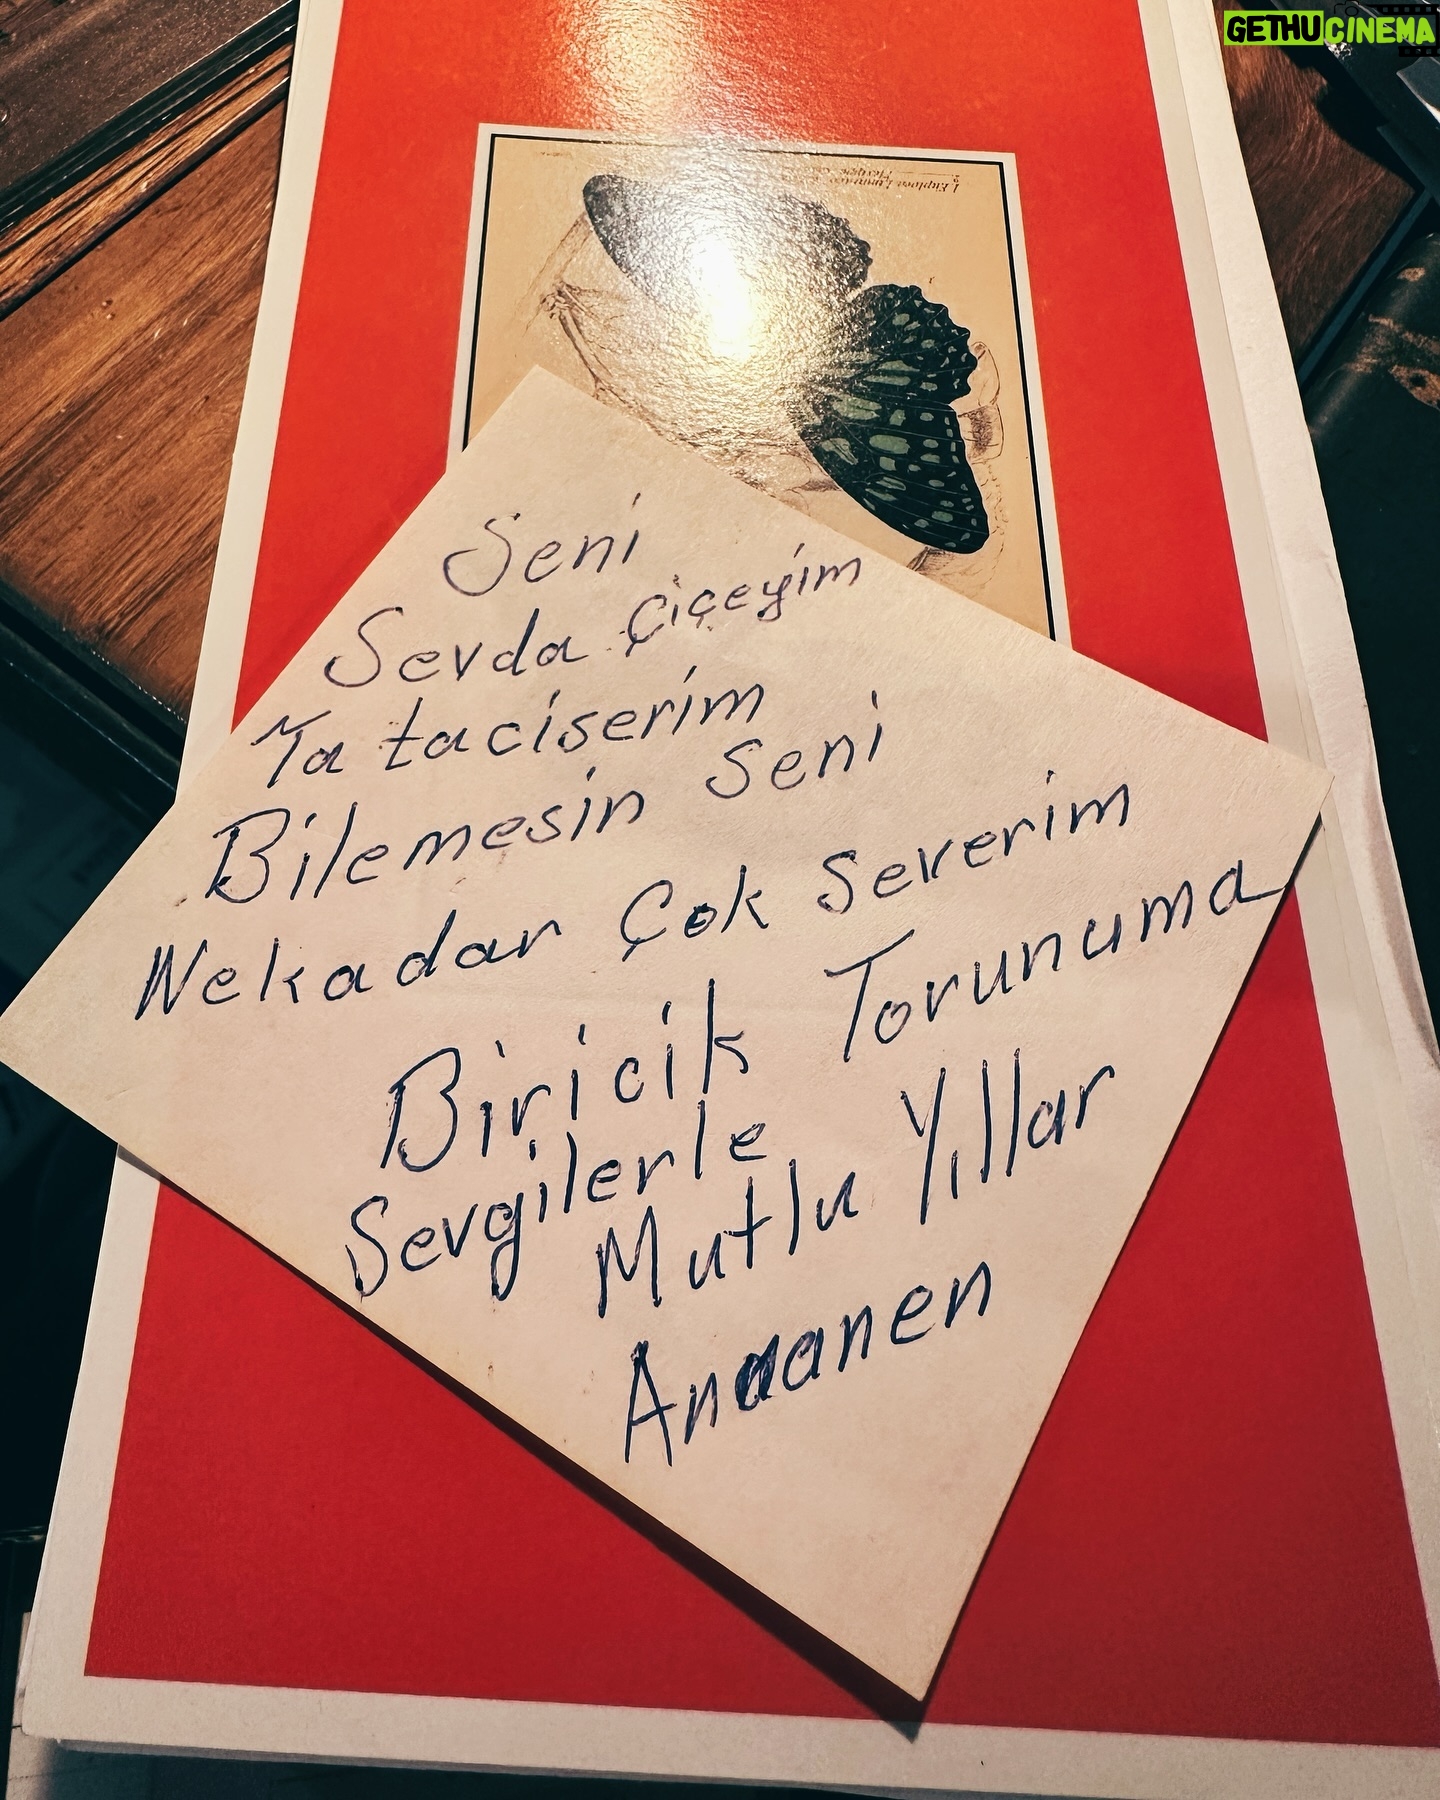 GETHUCINEMA
Seni
Sevda Çiçeyim
Ta taciserim
Bilemesin seni
Nekadar Çok severim
Biricik Torunuma
Sevgilerle
Mutlu Yıllar
Anaanen